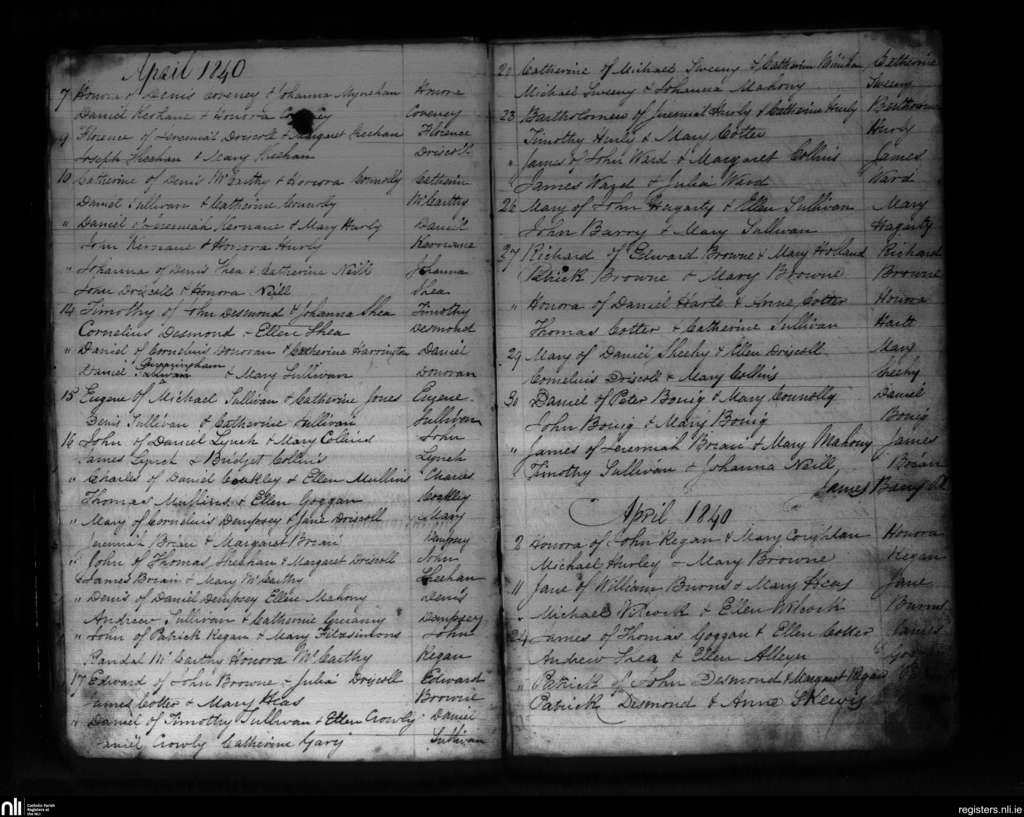 April 1840
7 Honora of Denis Coveney & Johanna Mynehan Honora
Daniel Keohane & Honora Coveney
9 Florence of Jeremiah Driscoll & Margaret Sheehan Florence
Joseph Sheehan & Mary Sheehan Driscoll
10 Catherine of Denis McCarthy & Honora Connolly Catherine
Daniel Sullivan & Catherine Connolly McCarthy
" Daniel of Jeremiah Kernane & Mary Hurly Daniel
John Kernane & Honora Hurly Kernane
" Johanna of Denis Shea & Catherine Neill Johanna
John Driscoll & Honora Neill Shea
14 Timothy of John Desmond & Johanna Shea Timothy
Cornelius Desmond & Ellen Shea Desmond
" Daniel of Cornelius Donovan & Catherine Harrington Daniel
Daniel Sullivan & Mary Sullivan Donovan
15 Eugene of Michael Sullivan & Catherine Jones Eugene
Denis Sullivan & Catherine Sullivan Sullivan
16 John of Daniel Lynch & Mary Collins John
James Lynch & Bridget Collins Lynch
" Charles of Daniel Coakley & Ellen Mullins Charles
Thomas Mullins & Ellen Goggan Coakley
" Mary of Cornelius Dempsey & Jane Driscoll Mary
Jeremiah Brian & Margaret Brian Dempsey
" John of Thomas Sheehan & Margaret Driscoll John
James Brian & Mary McCarthy Sheehan
" Denis of Daniel Dempsey Ellen Mahony Denis
Andrew Sullivan & Catherine Dempsey
" John of Patrick Regan & Mary Fitzsimons John
Randal McCarthy Honora McCarthy Regan
17 Edward of John Browne & Julia Driscoll Edward
James Cotter & Mary Heas Browne
" Daniel of Timothy Sullivan & Ellen Crowly Daniel
Daniel Crowly Catherine Gary Sullivan
Catherine of Michael Sweeny & Catherine Catherine
Michael Sweeny & Johanna Mahony Sweeny
23 Bartholomew of Jeremiah Hurly & Catherine Hurly
Timothy Hurly & Mary Cotter Hurly
" James of John Ward & Margaret Collins James
James Ward & Julia Ward Ward
26 Mary of John Hagarty & Ellen Sullivan Mary
John Barry & Mary Sullivan Hagarty
27 Richard of Edward Browne & Mary Holland Richard
Patrick Browne & Mary Browne Browne
" Honora of Daniel Harte & Anne Cotter Honora
Thomas Cotter & Catherine Sullivan Hartt
29 Mary of Daniel Sheehy & Ellen Driscoll Mary
Cornelius Driscoll & Mary Collins Sheehy
30 Daniel of Peter Bouig & Mary Connolly Daniel
John Bouig & Mary Bouig Bouig
" James of Jeremiah Brian & Mary Mahony James
Timothy Sullivan & Johanna Neill Brian
James Barry
April 1840
2 Honora of John Regan & Mary Coughlan Honora
Michael Hurley & Mary Browne Regan
11 Jane of William Burns & Mary Heas Jane
Michael & Ellen Burns
24 James of Thomas Goggan & Ellen Cotter James
Andrew Shea & Ellen Alleyn
" Patrick of John Desmond & Margaret Regan
Patrick Desmond & Anne Skewis
nli
Catholic Parish
Registers at
the NLI
registers.nli.ie